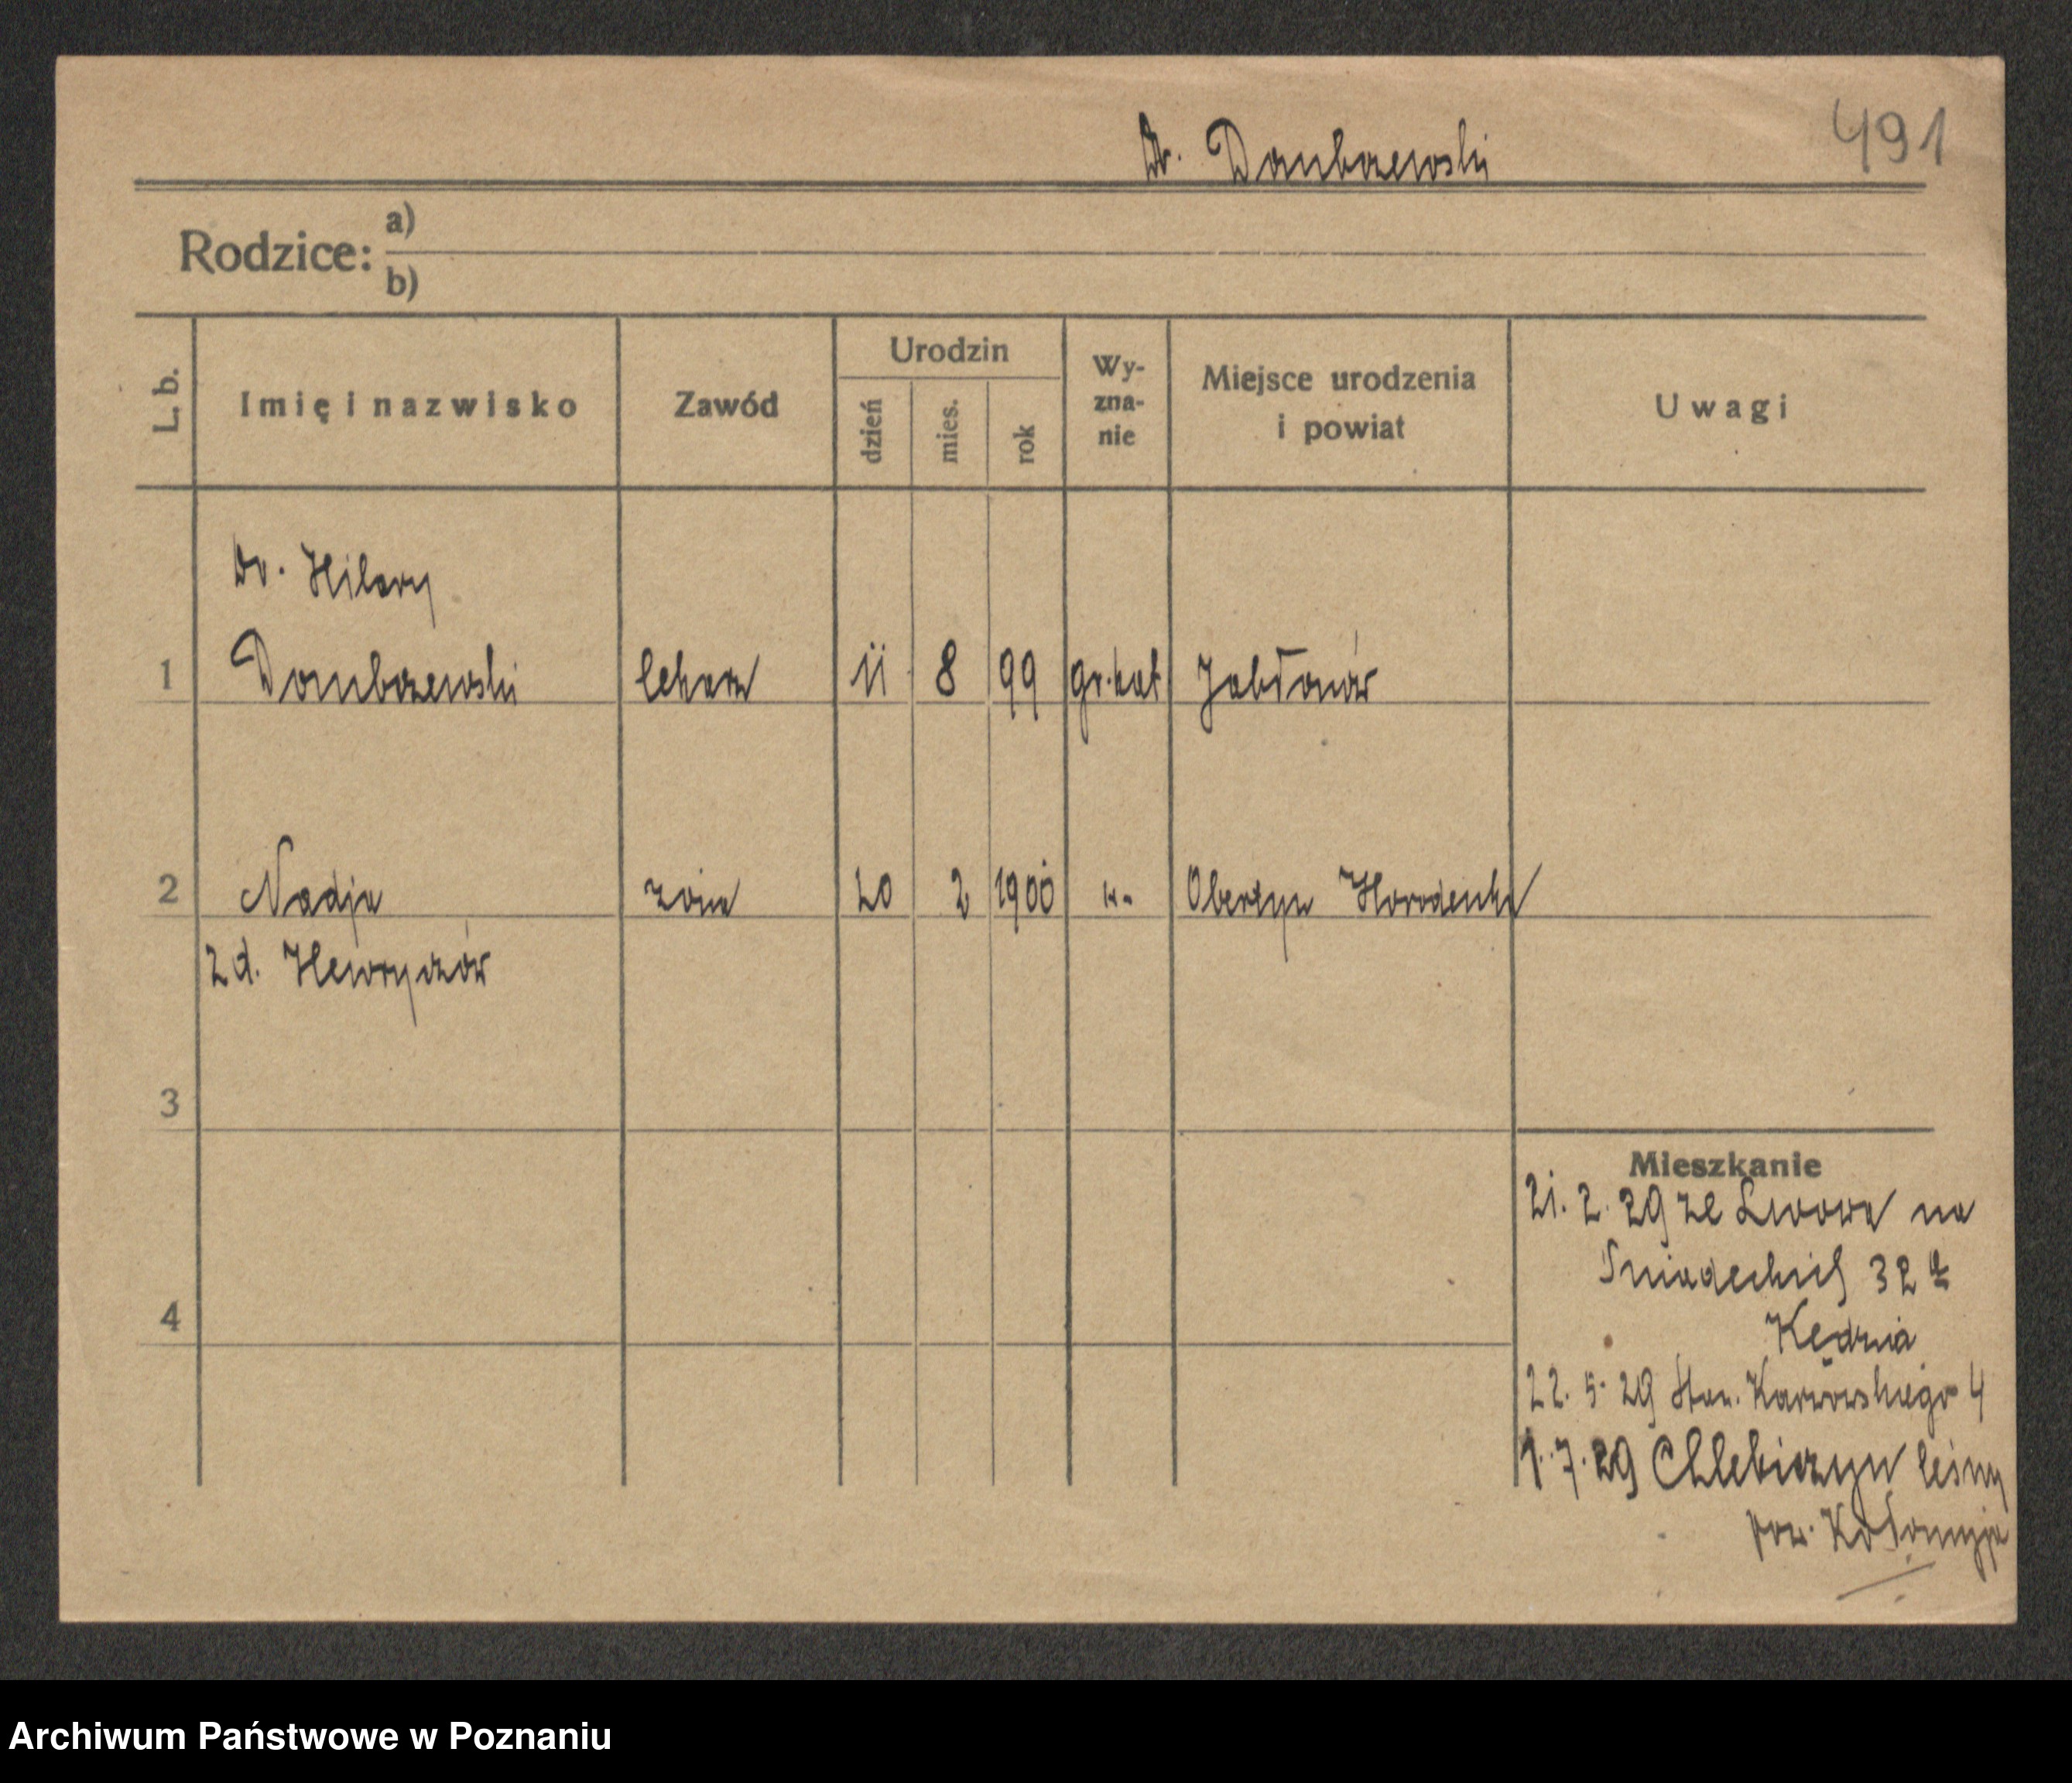 491
Dr. Dombczewski
Rodzice: a)
b)
L. b.
Imię i nazwisko
Zawód
Urodzin
dzień
mies.
rok
Wy-
zna-
nie
Miejsce urodzenia
i powiat
Uwagi
Dr. Hilary
1 Dombczewski lekarz 11 8 99 gr.kat Jabłonów
2 Nadja żona 20 2 1900 Obertyn Horodenka
zd. Hewryczów
3
4
Mieszkanie
21. 2. 29 ze Lwowa na
Śniadeckich 32
22. 5. 29 Stan. Karwowskiego 4
1. 7. 29 Chlebiczyn leśny
pow. Kołomyja
Archiwum Państwowe w Poznaniu